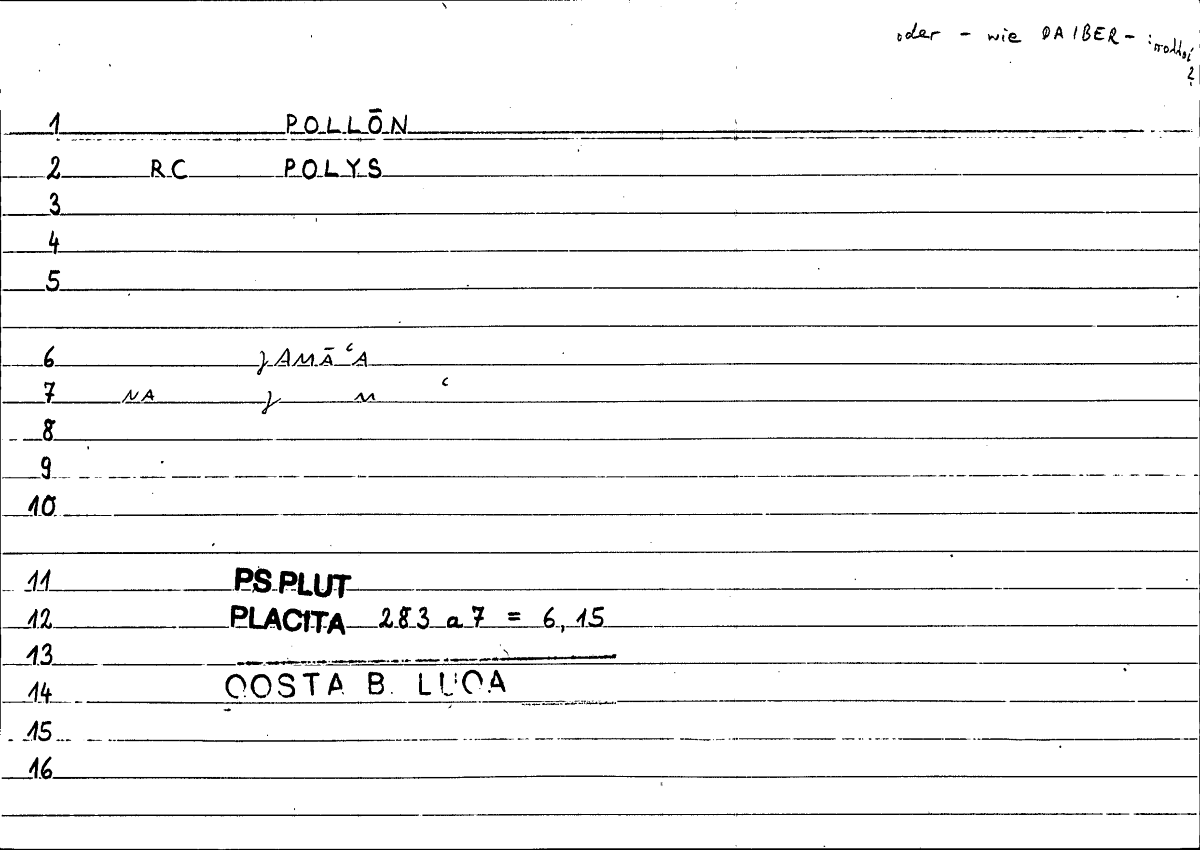 oder - wie DAIBER - : πολλοί ?
1 POLLŌN
2 RC POLYS
3
4
5
6 ǧAMĀʿA
7 NA ǧ M ʿ
8
9
10
11 PS.PLUT
12 PLACITA 283 a 7 = 6,15
13
14 QOSTA B. LUQA
15
16